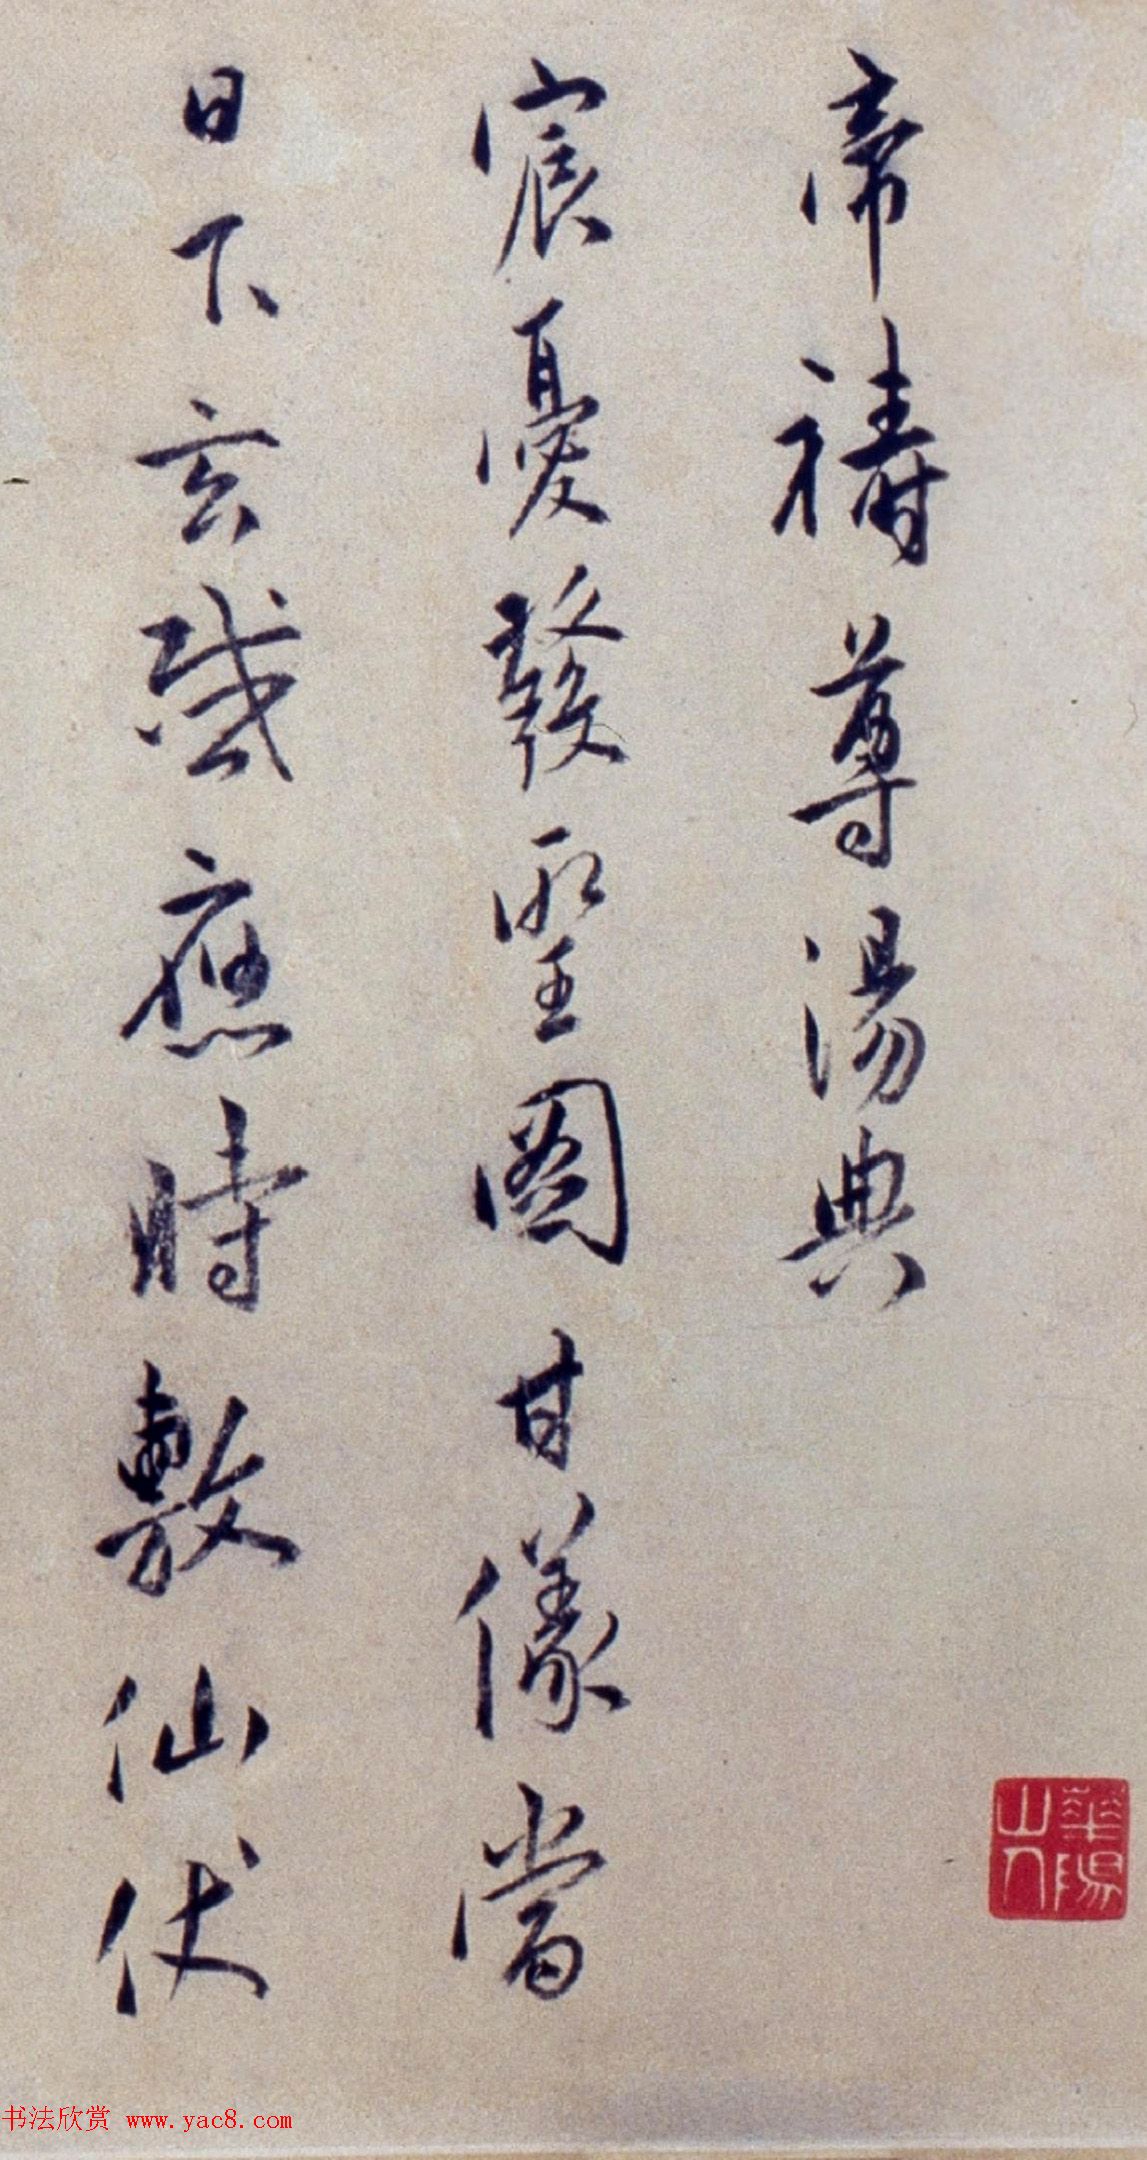 帝禱尊湯典
宸憂發聖圖甘儀當
日下玄感應時敷仙仗
華陽山人
书法欣赏 www.yac8.com